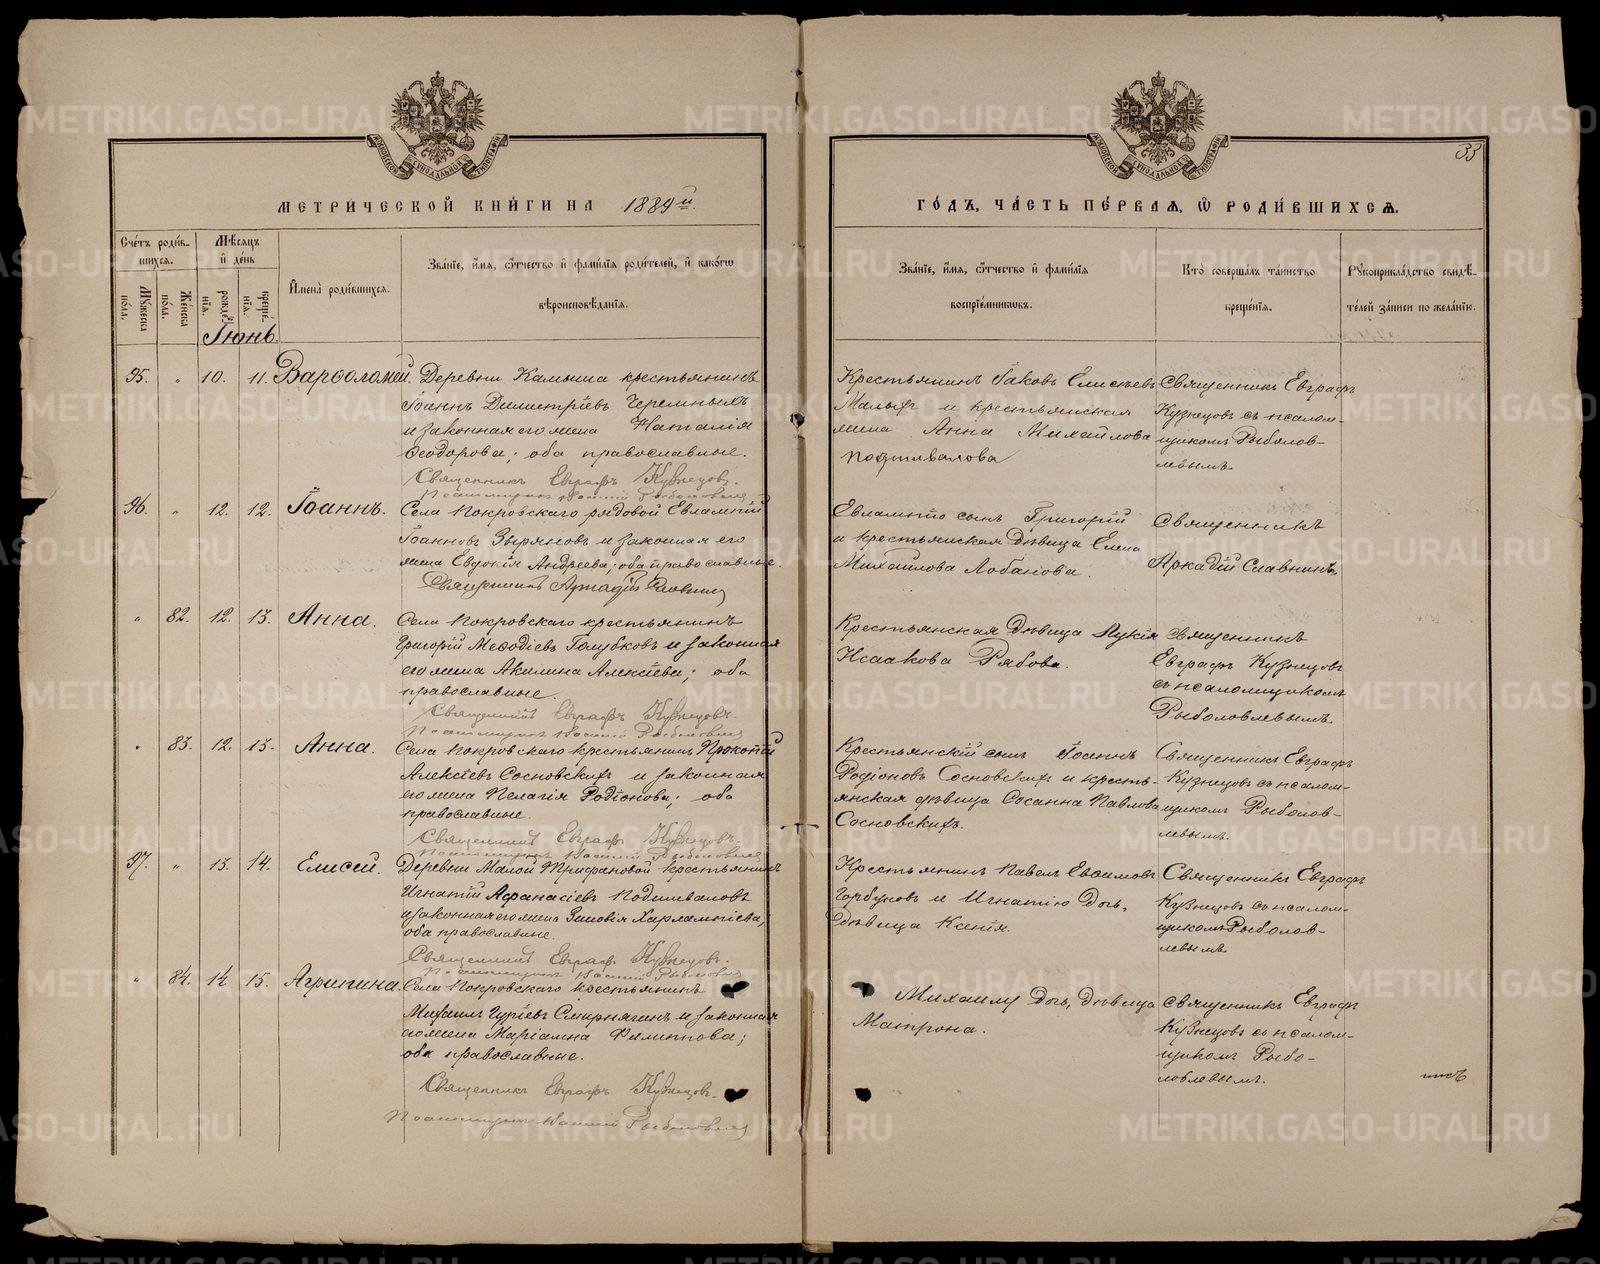 МЕТРИЧЕСКОЙ КНИГИ НА 1889й.
Счетъ родив-
шихся.
Мѣсяцъ
и день
Мужеска
пола.
Женска
пола.
рожде
нія.
креще-
нія.
Имена родившихся.
Званіе, имя, отчество и фамилія родителей, и какого
вѣроисповѣданія.
Іюнь.
95. " 10. 11. Варѳоломей. Деревни Камыша крестьянинъ
Іоаннъ Димитріевъ Черемныхъ
и законная его жена Наталія
Ѳеодорова; оба православные.
Священникъ Евграфъ Кузнецовъ.
96. " 12. 12. Іоаннъ. Села Покровскаго рядовой Евлампій
Іоанновъ Зыряновъ и законная его
жена Евдокія Андреева; оба православные.
Священникъ Аркадій Славнинъ
" 82. 12. 13. Анна. Села Покровскаго крестьянинъ
Григорій Меѳодіевъ Голубковъ и законная
его жена Акилина Алексіева; оба
православные.
Священникъ Евграфъ Кузнецовъ.
" 83. 12. 13. Анна. Села Покровскаго крестьянинъ Прокопій
Алексіевъ Сосновскихъ и законная
его жена Пелагія Родіонова; оба
православные.
Священникъ Евграфъ Кузнецовъ.
97. " 13. 14. Елисей. Деревни Малой Трифановой крестьянинъ
Игнатій Аѳанасіевъ Подшиваловъ
и законная его жена Зиновія Харлампіева;
оба православные.
Священникъ Евграфъ Кузнецовъ.
" 84. 14 15. Агрипина. Села Покровскаго крестьянинъ
Михаилъ Гуріевъ Смирнягинъ и законная
его жена Маріамна Филиппова;
оба православные.
Священникъ Евграфъ Кузнецовъ.
33
ГОДЪ, ЧАСТЬ ПЕРВАЯ, Ѡ РОДИВШИХСЯ.
Званіе, имя, отчество и фамилія
воспріемниковъ.
Кто совершалъ таинство
крещенія.
Рукоприкладство свидѣ-
телей записи по желанію.
Крестьянинъ Іаковъ Елисѣевъ
Малыхъ и крестьянская
жена Анна Михайлова
Подшивалова
Священникъ Евграфъ
Кузнецовъ съ псалом-
щикомъ Рыболов-
левымъ.
Евлампію сынъ Григорій
и крестьянская дѣвица Елена
Михайлова Лобанова.
Священникъ
Аркадій Славнинъ
Крестьянская дѣвица Лукія
Исаакова Рябова.
Священникъ
Евграфъ Кузнецовъ
съ псаломщикомъ
Рыболовлевымъ.
Крестьянскій сынъ Іоаннъ
Родіоновъ Сосновскихъ и кресть-
янская дѣвица Сосанна Павлова
Сосновскихъ.
Священникъ Евграфъ
Кузнецовъ съ псалом-
щикомъ Рыболов-
левымъ.
Крестьянинъ Павелъ Евѳимовъ
Горбуновъ и Игнатію дочь,
дѣвица Ксенія.
Священникъ Евграфъ
Кузнецовъ съ псалом-
щикомъ Рыболов-
левымъ.
Михаилу дочь, дѣвица
Матрона.
Священникъ Евграфъ
Кузнецовъ съ псалом-
щикомъ Рыбо-
ловлевымъ.
METRIKI.GASO-URAL.RU